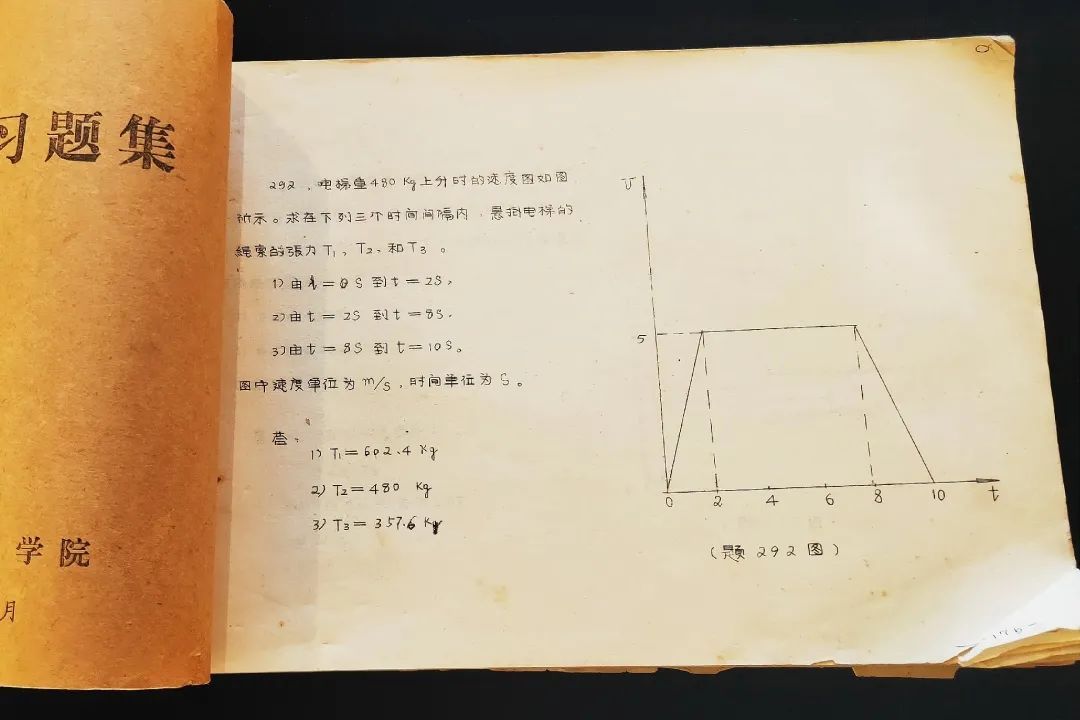 习题集
学院
月
292，电梯重480 Kg上升时的速度图如图
所示。求在下列三个时间间隔内，悬掛电梯的
繩索的張力T₁、T₂、和T₃。
1)由t=0S到t=2S，
2)由t=2S到t=8S，
3)由t=8S到t=10S。
图中速度单位为m/s，时间单位为S。
答：
1) T₁=602.4 Kg
2) T₂=480 Kg
3) T₃=357.6 Kg
v
5
0 2 4 6 8 10 t
(题292图)
-176-